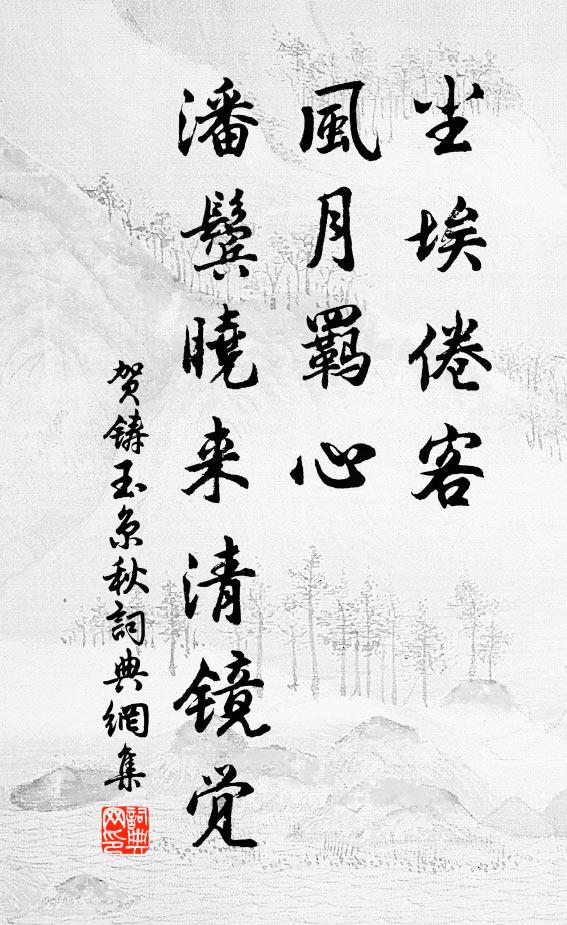 尘埃倦客
風月羁心
潘鬓曉来清镜觉
贺铸玉京秋詞典網集
詞典网印